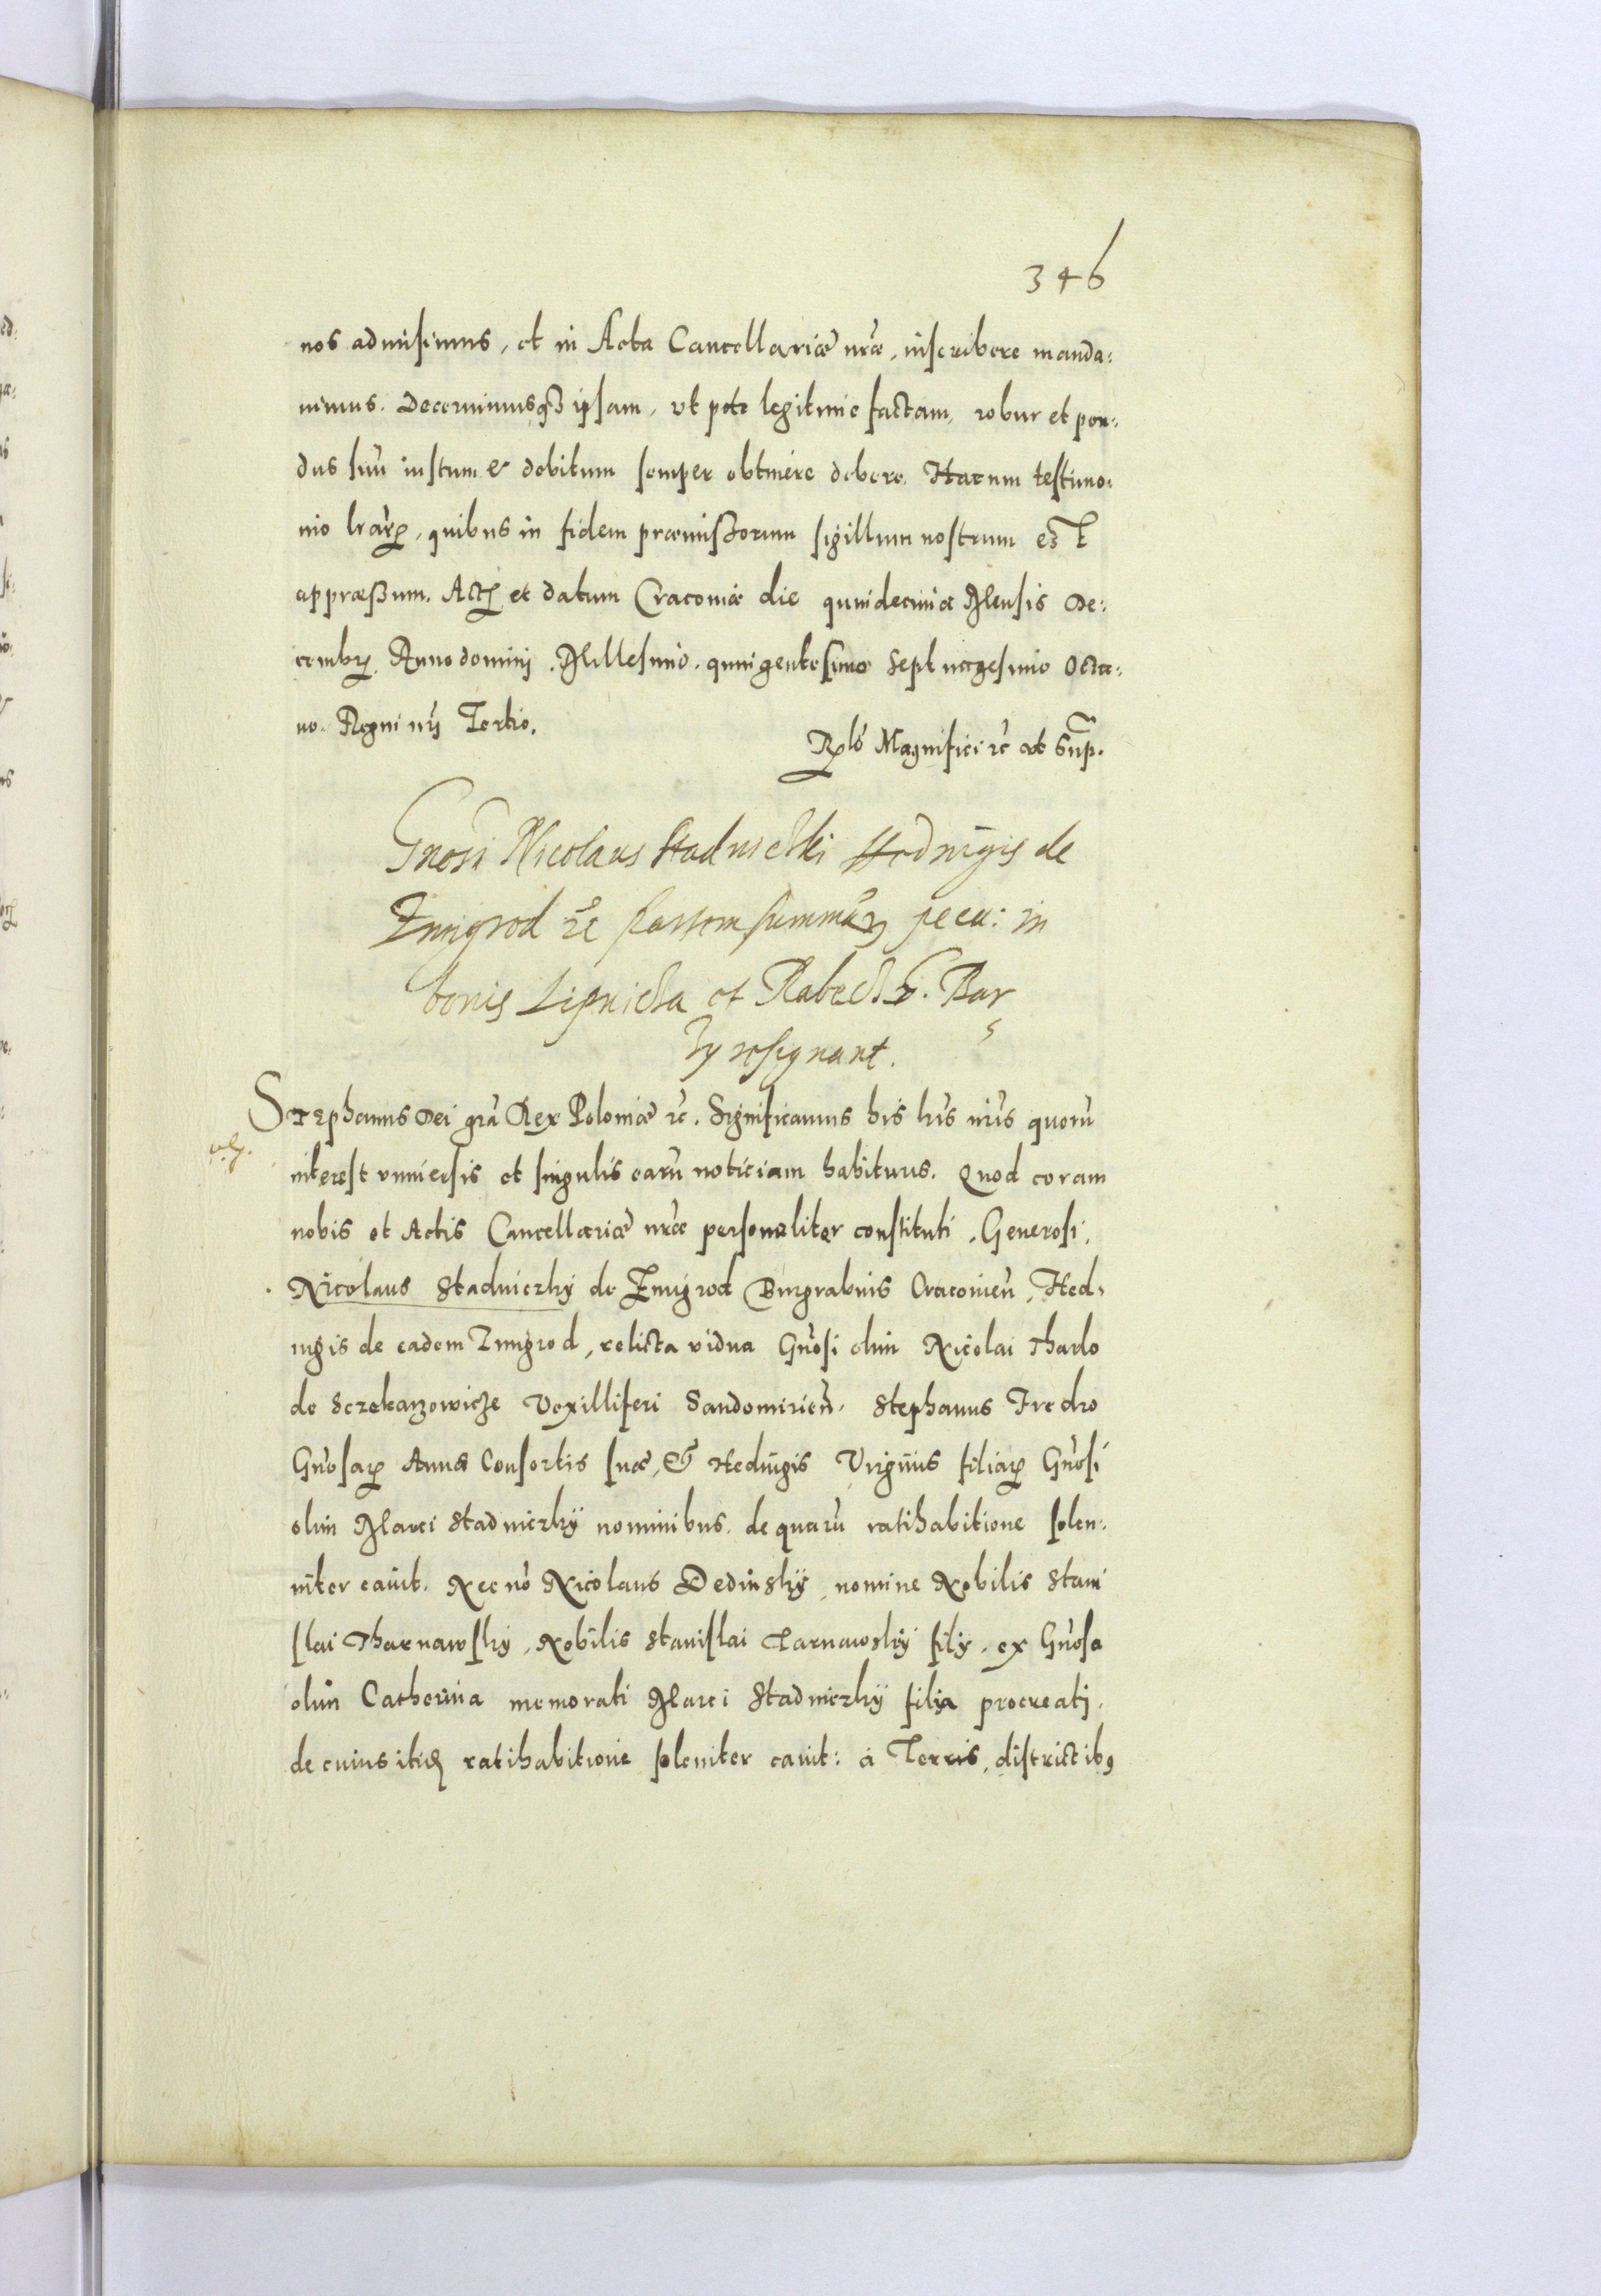 346
nos admisimus, et in Acta Cancellariæ nr̃æ, inscribere manda:
uimus. Decernimusq́ꝫ ipsam, ut pote legitime factam, robur et pon:
dus suũ iustum & debitum semper obtinere debere. Harum testimo:
nio lr̃arꝝ, quibus in fidem præmissorum sigillum nostrum est
appræssum. Actũ et datum Cracouiæ die quindecima Mensis De:
cembrꝭ. Anno domini. Millesimo. quingentesimo Septuagesimo Octa:
uo. Regni nrĩ Tertio.
Rel̃o Magnifici ꝛc̃ ut Supr.
Gnosi Nicolaus Stadnicki Hedvigis de
Zmigrod ꝛc̃ partem summarũ pecu: in
bonis Lipnicza et
resignant.
Stephanus Dei gr̃a Rex Poloniæ ꝛc̃. Significamus his lr̃is nr̃is quorũ
interest vniuersis et singulis earũ noticiam habituris. Quod coram
nobis et Actis Cancellariæ nr̃æ personaliter constituti. Generosi,
Nicolaus Stadniczky de Zmigrod Burgrabius Cracouien̄, Hed:
uigis de eadem Zmigrod, relicta vidua Gnõsi olim Nicolai Tharlo
de Sczekarzowicze Vexilliferi Sandomirien̄. Stephanus Fredro
Gnõsarꝝ Annæ Consortis suæ, & Heduigis Virginis filiarꝝ Gnõsi
olim Marci Stadniczky nominibus. de quarũ ratihabitione solen:
niter cauit. Nec nõ Nicolaus Dedinsky, nomine Nobilis Stani
slai Tharnawsky, Nobilis Stanislai Tarnawsky filij, ex Gnõsa
olim Catherina memorati Marci Stadniczky filia procreati.
de cuius itidẽ ratihabitione soleniter cauit: à Terris, districtibꝰ